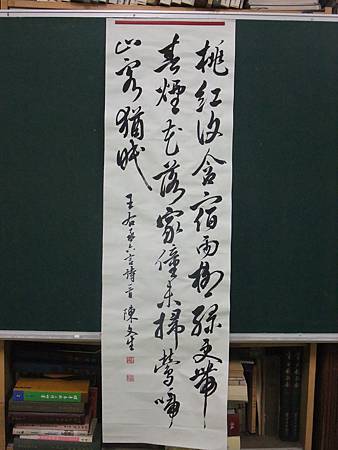 桃紅復含宿雨柳綠更帶
春煙花落家僮未掃鶯啼
山客猶眠
王右丞六言詩一首 陳文生